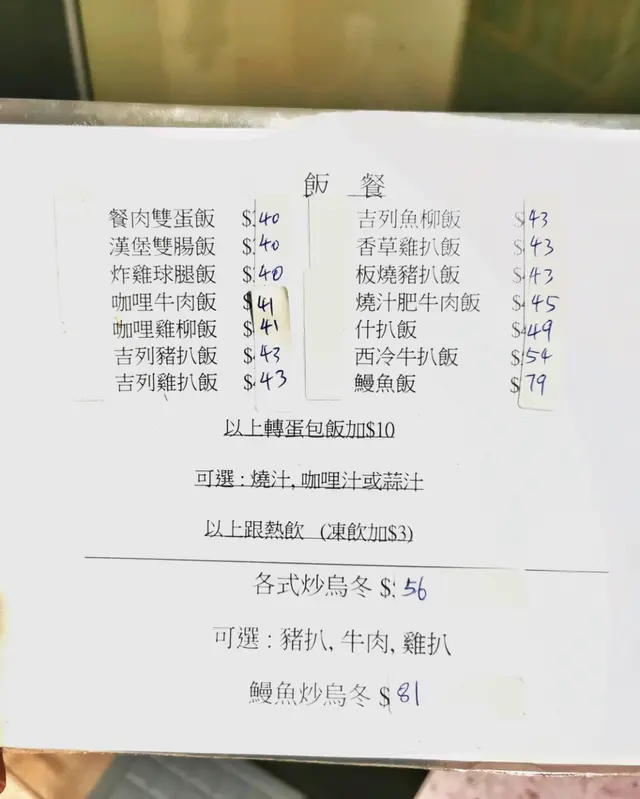 飯 餐
餐肉雙蛋飯 $40
漢堡雙腸飯 $40
炸雞球腿飯 $40
咖哩牛肉飯 $41
咖哩雞柳飯 $41
吉列豬扒飯 $43
吉列雞扒飯 $43
吉列魚柳飯 $43
香草雞扒飯 $43
板燒豬扒飯 $43
燒汁肥牛肉飯 $45
什扒飯 $49
西冷牛扒飯 $54
鰻魚飯 $79
以上轉蛋包飯加$10
可選 : 燒汁, 咖哩汁或蒜汁
以上跟熱飲 (凍飲加$3)
各式炒烏冬 $ 56
可選 : 豬扒, 牛肉, 雞扒
鰻魚炒烏冬 $ 81